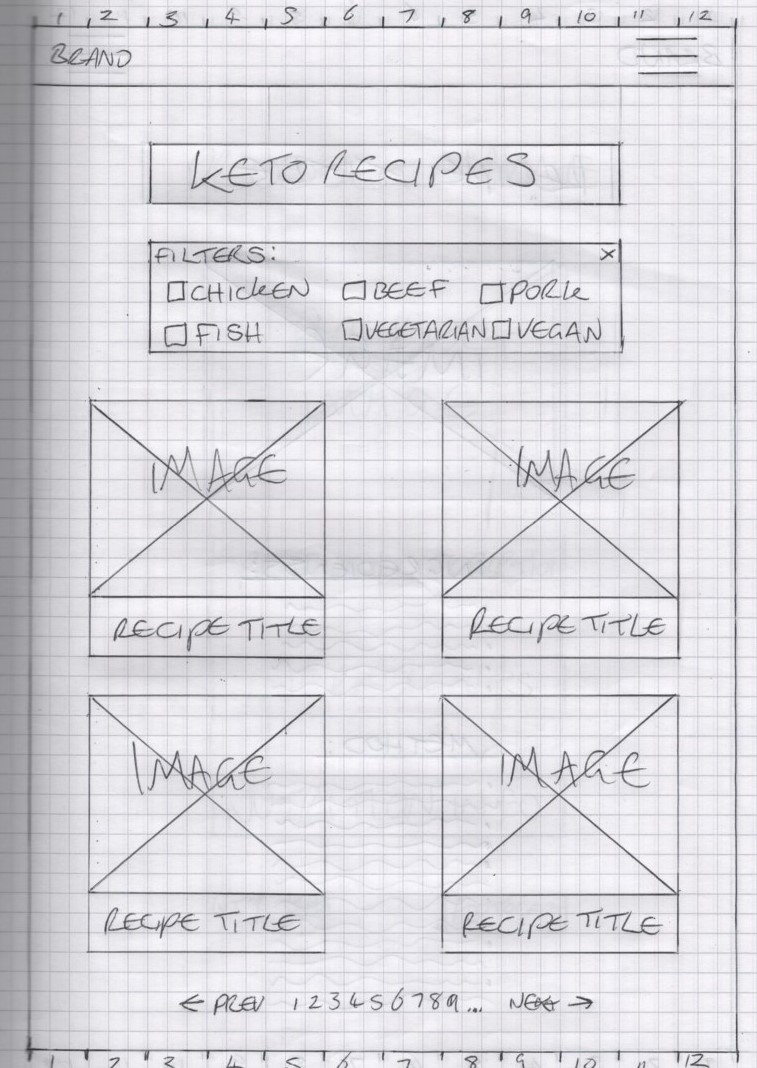 1 2 3 4 5 6 7 8 9 10 11 12
BRAND
KETO RECIPES
FILTERS: x
CHICKEN BEEF PORK
FISH VEGETARIAN VEGAN
IMAGE IMAGE
RECIPE TITLE RECIPE TITLE
IMAGE IMAGE
RECIPE TITLE RECIPE TITLE
← PREV 1 2 3 4 5 6 7 8 9... NEXT →
1 2 3 4 5 6 7 8 9 10 11 12